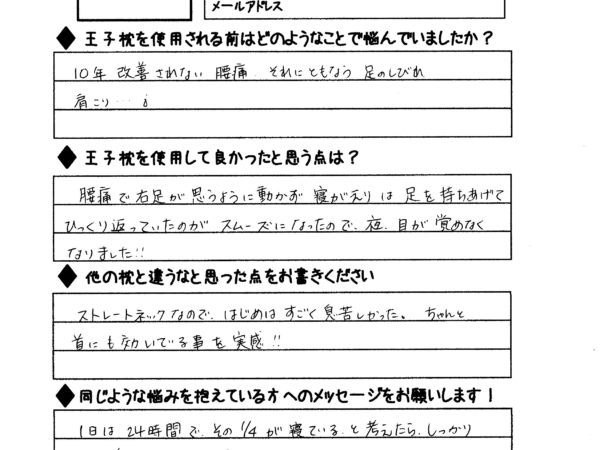 メールアドレス
◆王子枕を使用される前はどのようなことで悩んでいましたか？
10年 改善されない 腰痛 それにともなう 足のしびれ
肩こり…
◆王子枕を使用して良かったと思う点は？
腰痛で右足が思うように動かず 寝がえりは 足を持ちあげて
ひっくり返っていたのが スムーズになったので、夜、目が覚めなく
なりました!!
◆他の枕と違うなと思った点をお書きください
ストレートネックなので、はじめは すごく息苦しかった。 ちゃんと
首にも効いている事を実感!!
◆同じような悩みを抱えている方へのメッセージをお願いします！
1日は 24時間で、その 1/4 が 寝ている、と 考えたら、しっかり